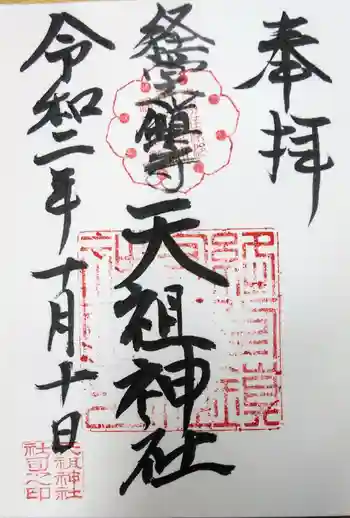 奉拝
経堂鎮守
天祖神社
令和二年十月十日
天祖神社
社司之印